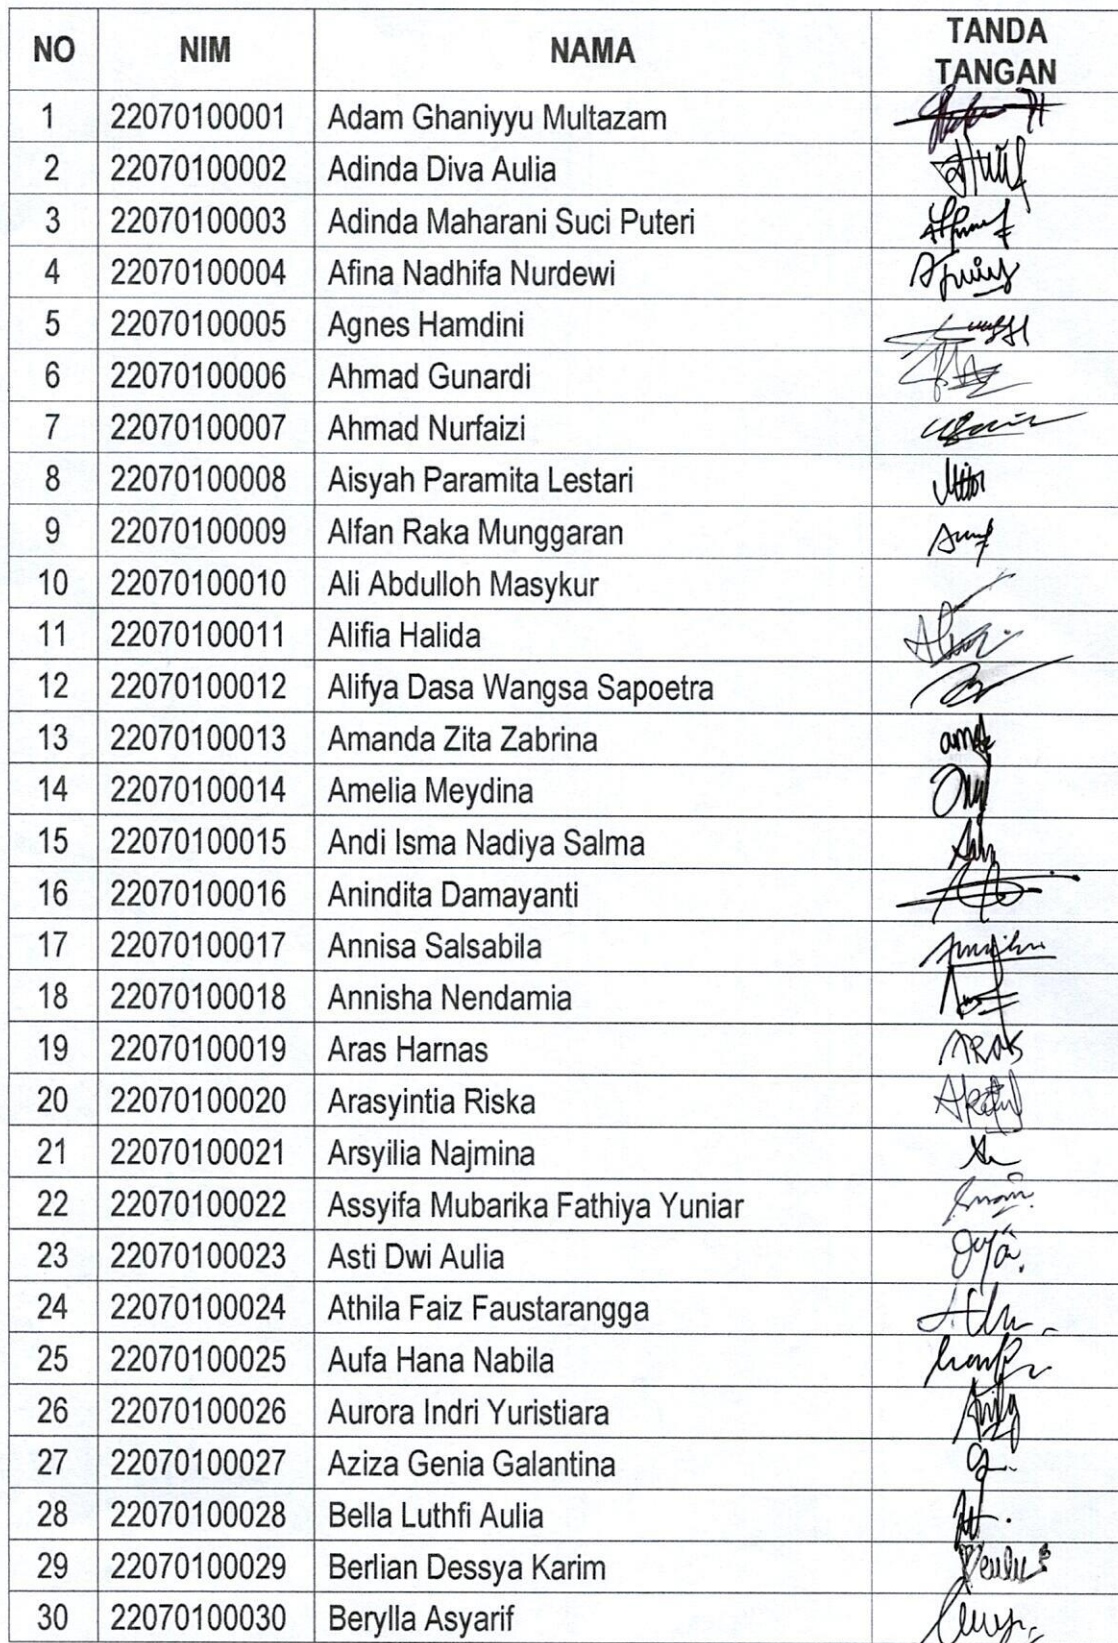 NO NIM NAMA TANDA TANGAN
1 22070100001 Adam Ghaniyyu Multazam
2 22070100002 Adinda Diva Aulia
3 22070100003 Adinda Maharani Suci Puteri
4 22070100004 Afina Nadhifa Nurdewi
5 22070100005 Agnes Hamdini
6 22070100006 Ahmad Gunardi
7 22070100007 Ahmad Nurfaizi
8 22070100008 Aisyah Paramita Lestari
9 22070100009 Alfan Raka Munggaran
10 22070100010 Ali Abdulloh Masykur
11 22070100011 Alifia Halida
12 22070100012 Alifya Dasa Wangsa Sapoetra
13 22070100013 Amanda Zita Zabrina
14 22070100014 Amelia Meydina
15 22070100015 Andi Isma Nadiya Salma
16 22070100016 Anindita Damayanti
17 22070100017 Annisa Salsabila
18 22070100018 Annisha Nendamia
19 22070100019 Aras Harnas ARAS
20 22070100020 Arasyintia Riska
21 22070100021 Arsyilia Najmina
22 22070100022 Assyifa Mubarika Fathiya Yuniar
23 22070100023 Asti Dwi Aulia
24 22070100024 Athila Faiz Faustarangga
25 22070100025 Aufa Hana Nabila
26 22070100026 Aurora Indri Yuristiara
27 22070100027 Aziza Genia Galantina
28 22070100028 Bella Luthfi Aulia
29 22070100029 Berlian Dessya Karim
30 22070100030 Berylla Asyarif